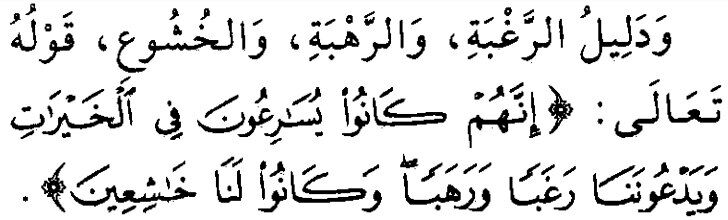 وَدَلِيلُ الرَّغْبَةِ، وَالرَّهْبَةِ، وَالخُشُوعِ، قَوْلُهُ
تَعَالَى: ﴿إِنَّهُمْ كَانُوا۟ يُسَٰرِعُونَ فِى ٱلْخَيْرَٰتِ
وَيَدْعُونَنَا رَغَبًا وَرَهَبًاۖ وَكَانُوا۟ لَنَا خَٰشِعِينَ﴾.